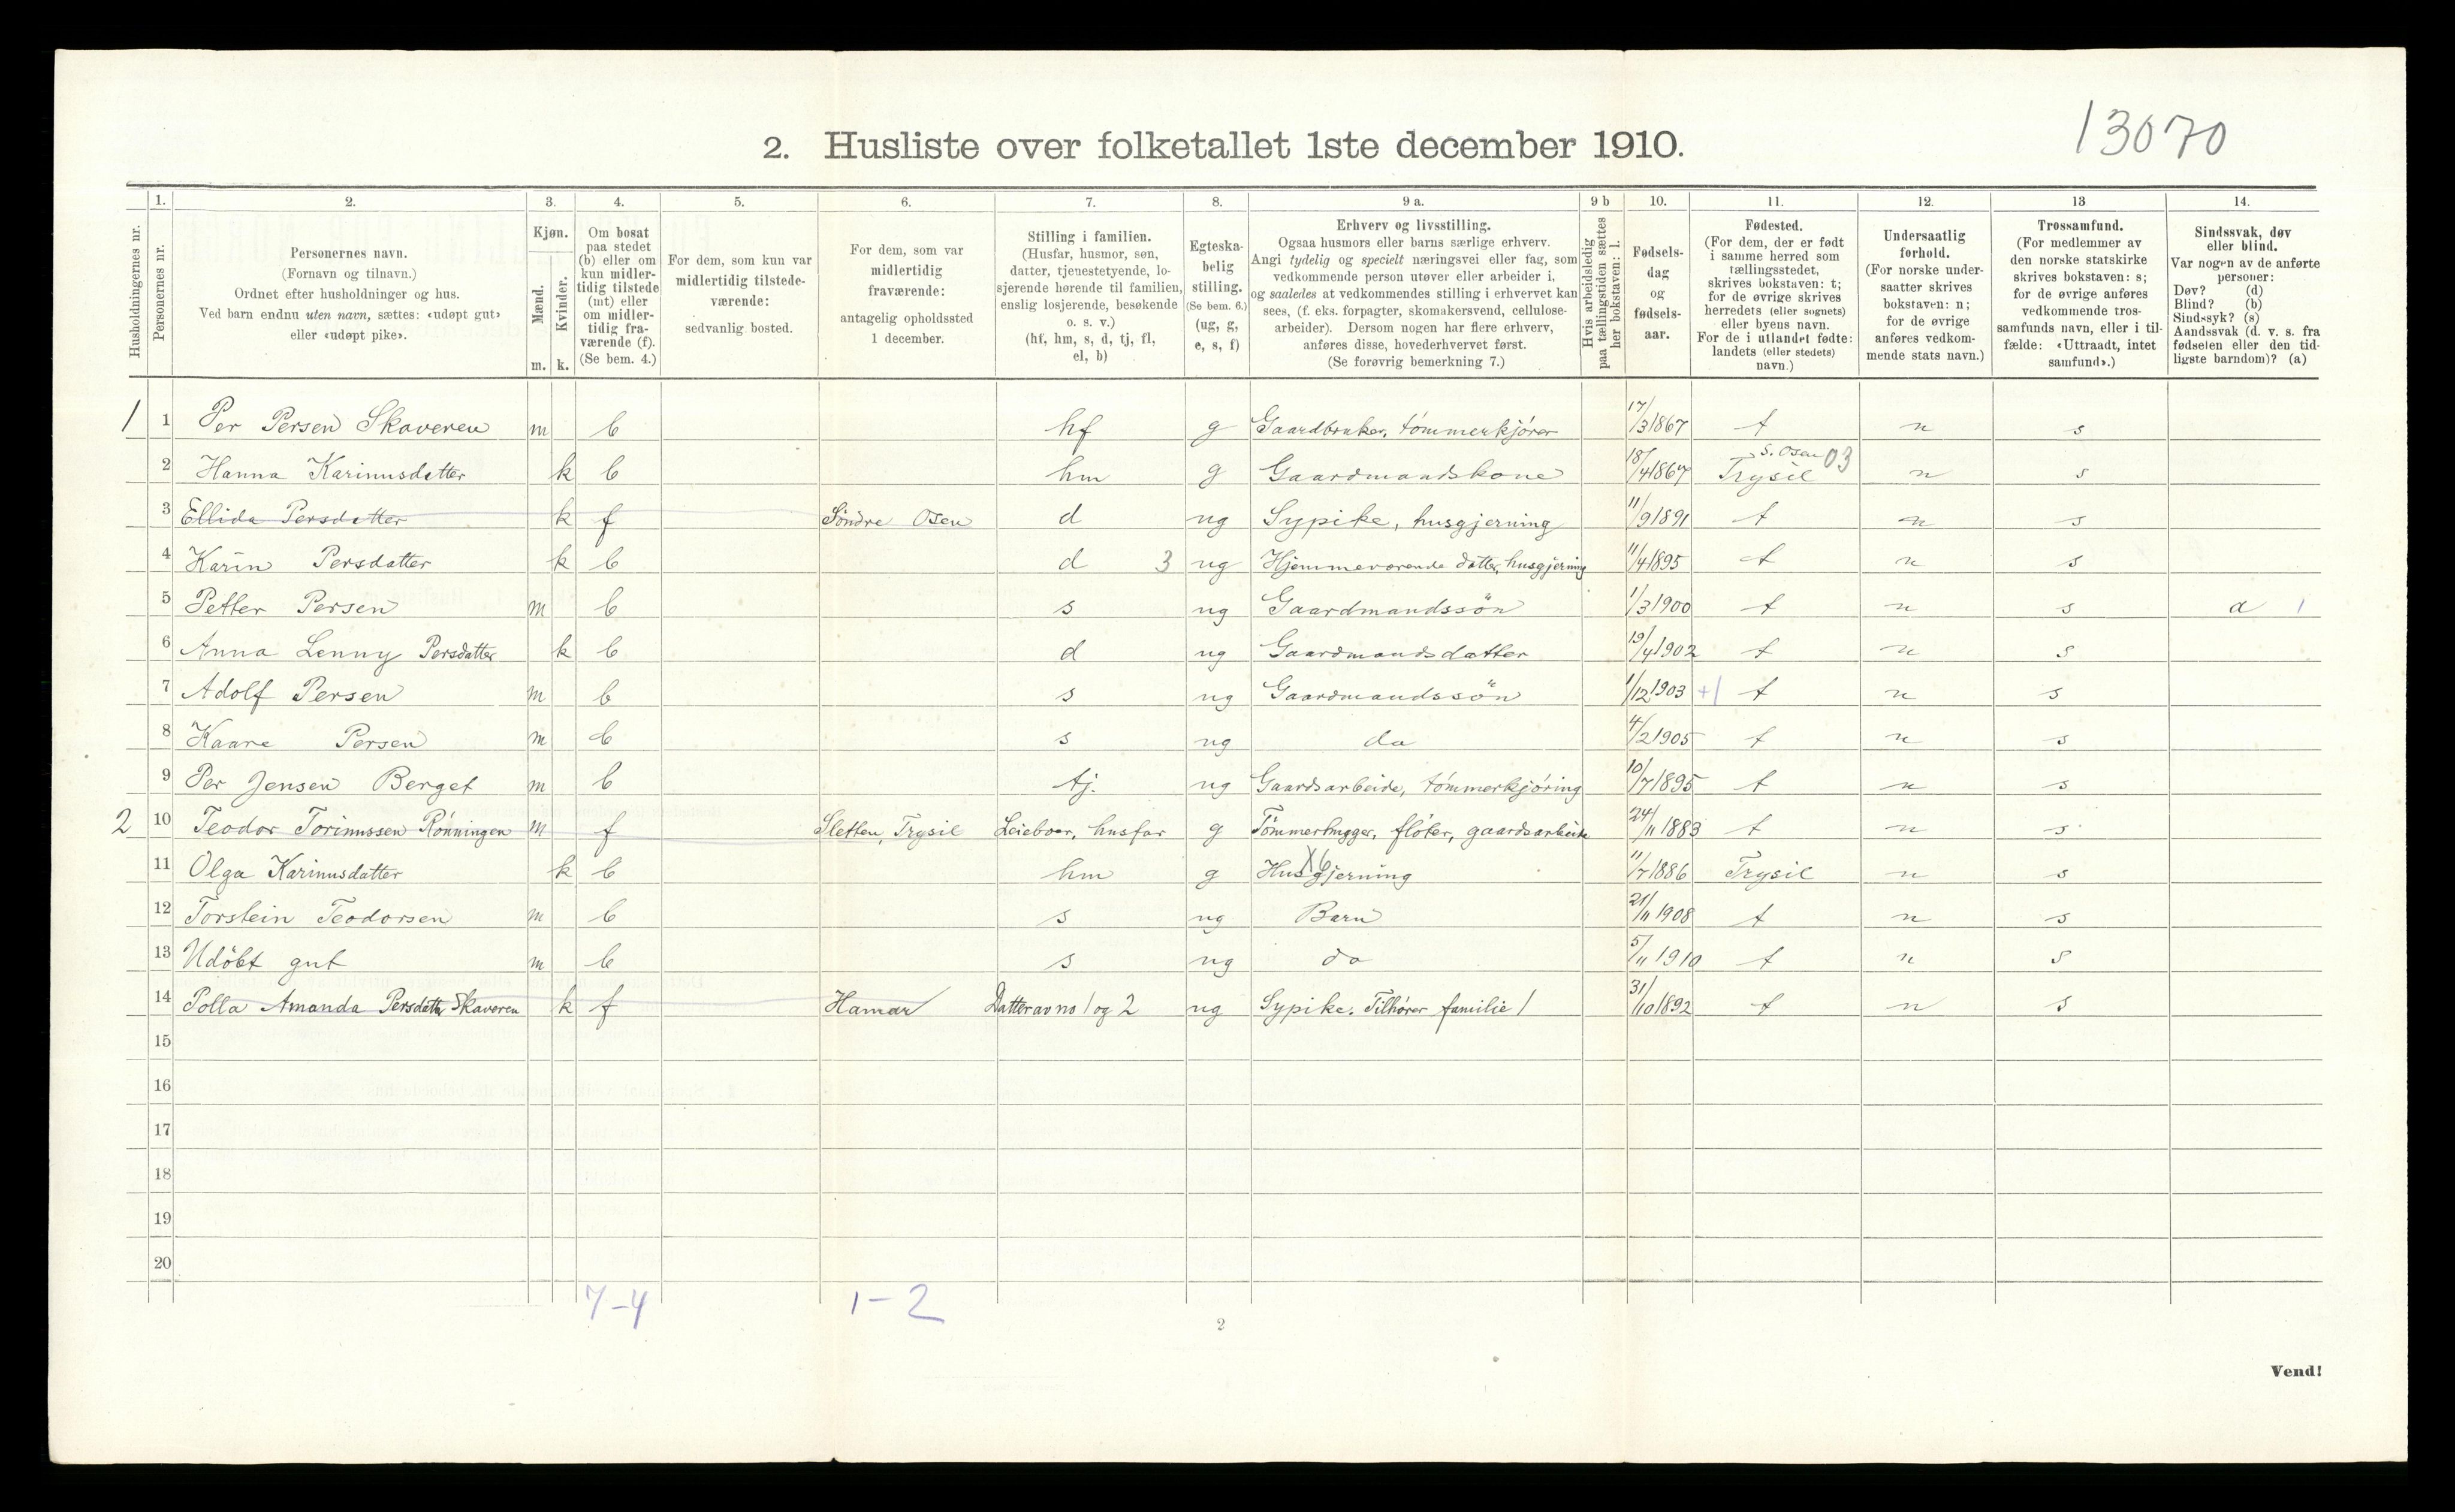 13070
2. Husliste over folketallet 1ste december 1910.
1. 2. 3. 4. 5. 6. 7. 8. 9 a. 9 b 10. 11. 12. 13 14.
Husholdningernes nr.
Personernes nr.
Personernes navn.
(Fornavn og tilnavn.)
Ordnet efter husholdninger og hus.
Ved barn endnu uten navn, sættes: «udøpt gut»
eller «udøpt pike».
Kjøn.
Mænd.
Kvinder.
m. k.
Om bosat
paa stedet
(b) eller om
kun midler-
tidig tilstede
(mt) eller
om midler-
tidig fra-
værende (f).
(Se bem. 4.)
For dem, som kun var
midlertidig tilstede-
værende:
sedvanlig bosted.
For dem, som var
midlertidig
fraværende:
antagelig opholdssted
1 december.
Stilling i familien.
(Husfar, husmor, søn,
datter, tjenestetyende, lo-
sjerende hørende til familien,
enslig losjerende, besøkende
o. s. v.)
(hf, hm, s, d, tj, fl,
el, b)
Egteska-
belig
stilling.
(Se bem. 6.)
(ug, g,
e, s, f)
Erhverv og livsstilling.
Ogsaa husmors eller barns særlige erhverv.
Angi tydelig og specielt næringsvei eller fag, som
vedkommende person utøver eller arbeider i,
og saaledes at vedkommendes stilling i erhvervet kan
sees, (f. eks. forpagter, skomakersvend, cellulose-
arbeider). Dersom nogen har flere erhverv,
anføres disse, hovederhvervet først.
(Se forøvrig bemerkning 7.)
Hvis arbeidsledig
paa tællingstiden sættes
her bokstaven: l.
Fødsels-
dag
og
fødsels-
aar.
Fødested.
(For dem, der er født
i samme herred som
tællingsstedet,
skrives bokstaven: t;
for de øvrige skrives
herredets (eller sognets)
eller byens navn.
For de i utlandet fødte:
landets (eller stedets)
navn.)
Undersaatlig
forhold.
(For norske under-
saatter skrives
bokstaven: n;
for de øvrige
anføres vedkom-
mende stats navn.)
Trossamfund.
(For medlemmer av
den norske statskirke
skrives bokstaven: s;
for de øvrige anføres
vedkommende tros-
samfunds navn, eller i til-
fælde: «Uttraadt, intet
samfund».)
Sindssvak, døv
eller blind.
Var nogen av de anførte
personer:
Døv? (d)
Blind? (b)
Sindssyk? (s)
Aandssvak (d. v. s. fra
fødselen eller den tid-
ligste barndom)? (a)
1 1 Per Persen Skaveren m b hf g Gaardbruker, tømmerkjører 17/3 1867 t n s
2 Hanna Karinusdatter k b hm g Gaardmandskone 18/4 1867 S. Osen 03 Trysil n s
3 Ellida Persdatter k f Söndre Osen d ug Sypike, husgjerning 11/9 1891 t n s
4 Karin Persdatter k b d 3 ug Hjemmeværende datter, husgjerning 11/4 1895 t n s
5 Petter Persen m b s ug Gaardmandssön 1/3 1900 t n s a 1
6 Anna Lenny Persdatter k b d ug Gaardmandsdatter 19/4 1902 t n s
7 Adolf Persen m b s ug Gaardmandssön 1/12 1903 +1 t n s
8 Kaare Persen m b s ug do 4/2 1905 t n s
9 Per Jensen Berget m b tj. ug Gaardsarbeide, tømmerkjøring 10/7 1895 t n s
2 10 Teodor Torinussen Rönningen m f Sletten, Trysil Leieboer, husfar g Tömmerhugger, flöter, gaardsarbeide 24/11 1883 t n s
11 Olga Karinusdatter k b hm g Husgjerning X6 11/7 1886 Trysil n s
12 Torstein Teodorsen m b s ug Barn 21/11 1908 t n s
13 Udöbt gut m b s ug do 5/11 1910 t n s
14 Polla Amanda Persdatter Skaveren k f Hamar Datter av no 1 og 2 ug Sypike. Tilhører familie 1 31/10 1892 t n s
15
16
17
18
19
20
7-4 1-2
2
Vend!